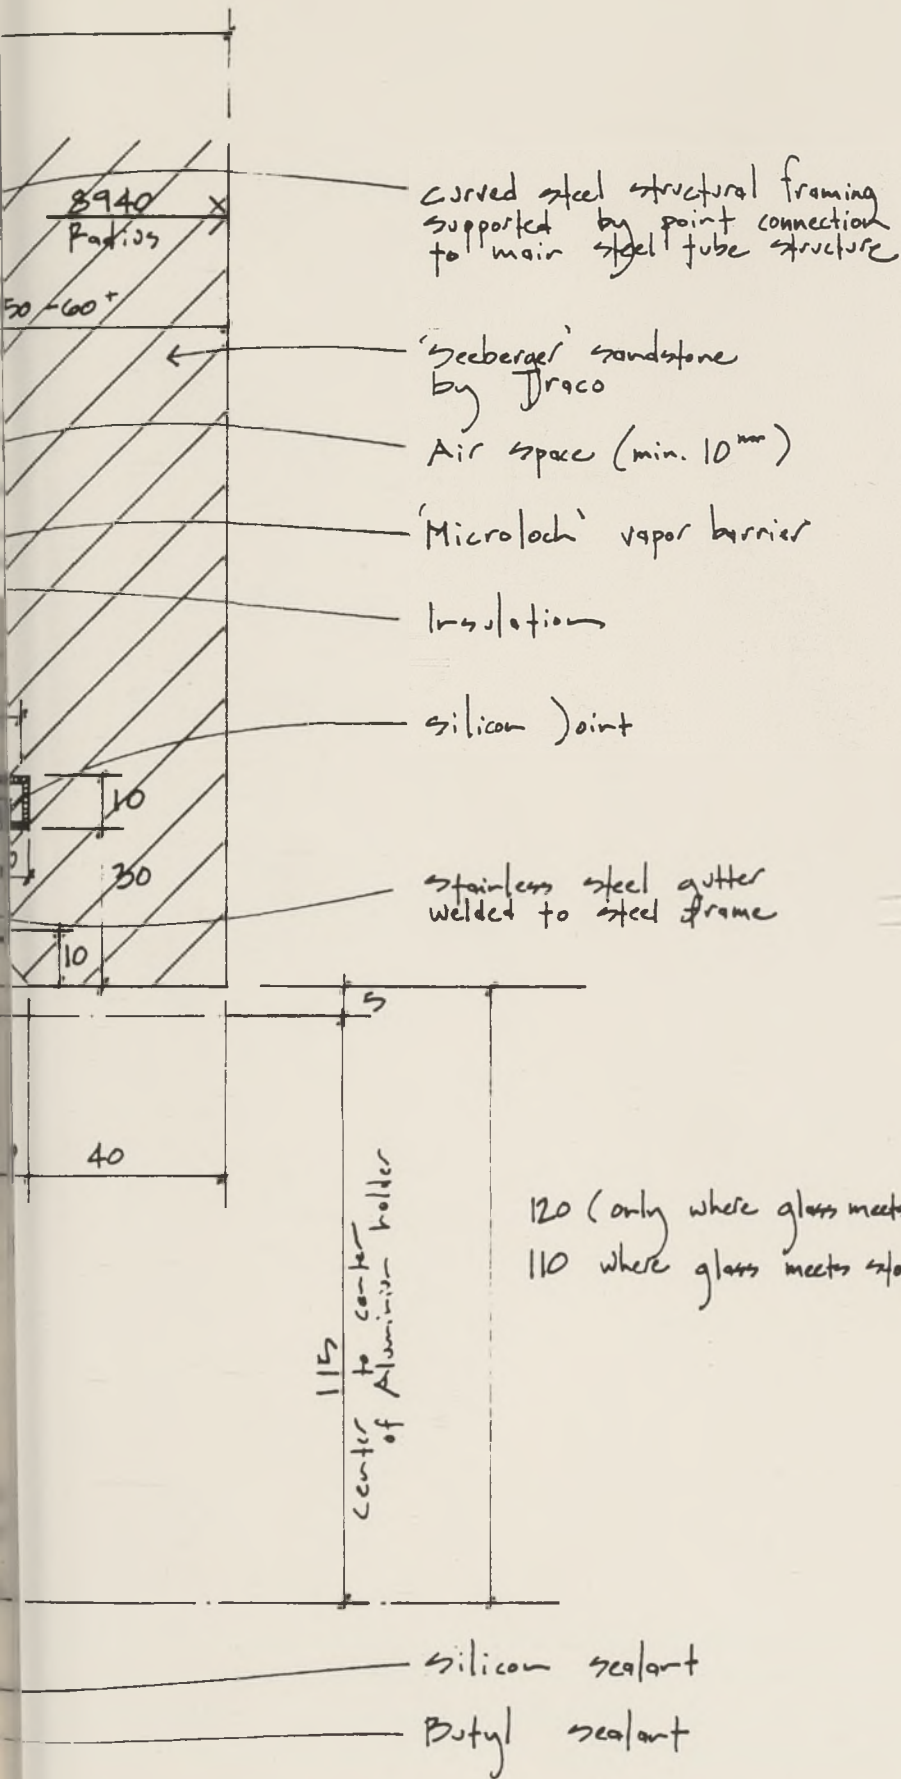 curved steel structural framing
supported by point connection
to main steel tube structure
8940
Radius
50-60+
'Seeberger' sandstone
by Draco
Air space (min. 10mm)
'Microloch' vapor barrier
Insulation
silicon joint
10
30
stainless steel gutter
welded to steel frame
10
5
40
115
center to center
of Aluminium holder
120 (only where glass meets
110 where glass meets
silicon sealant
Butyl sealant